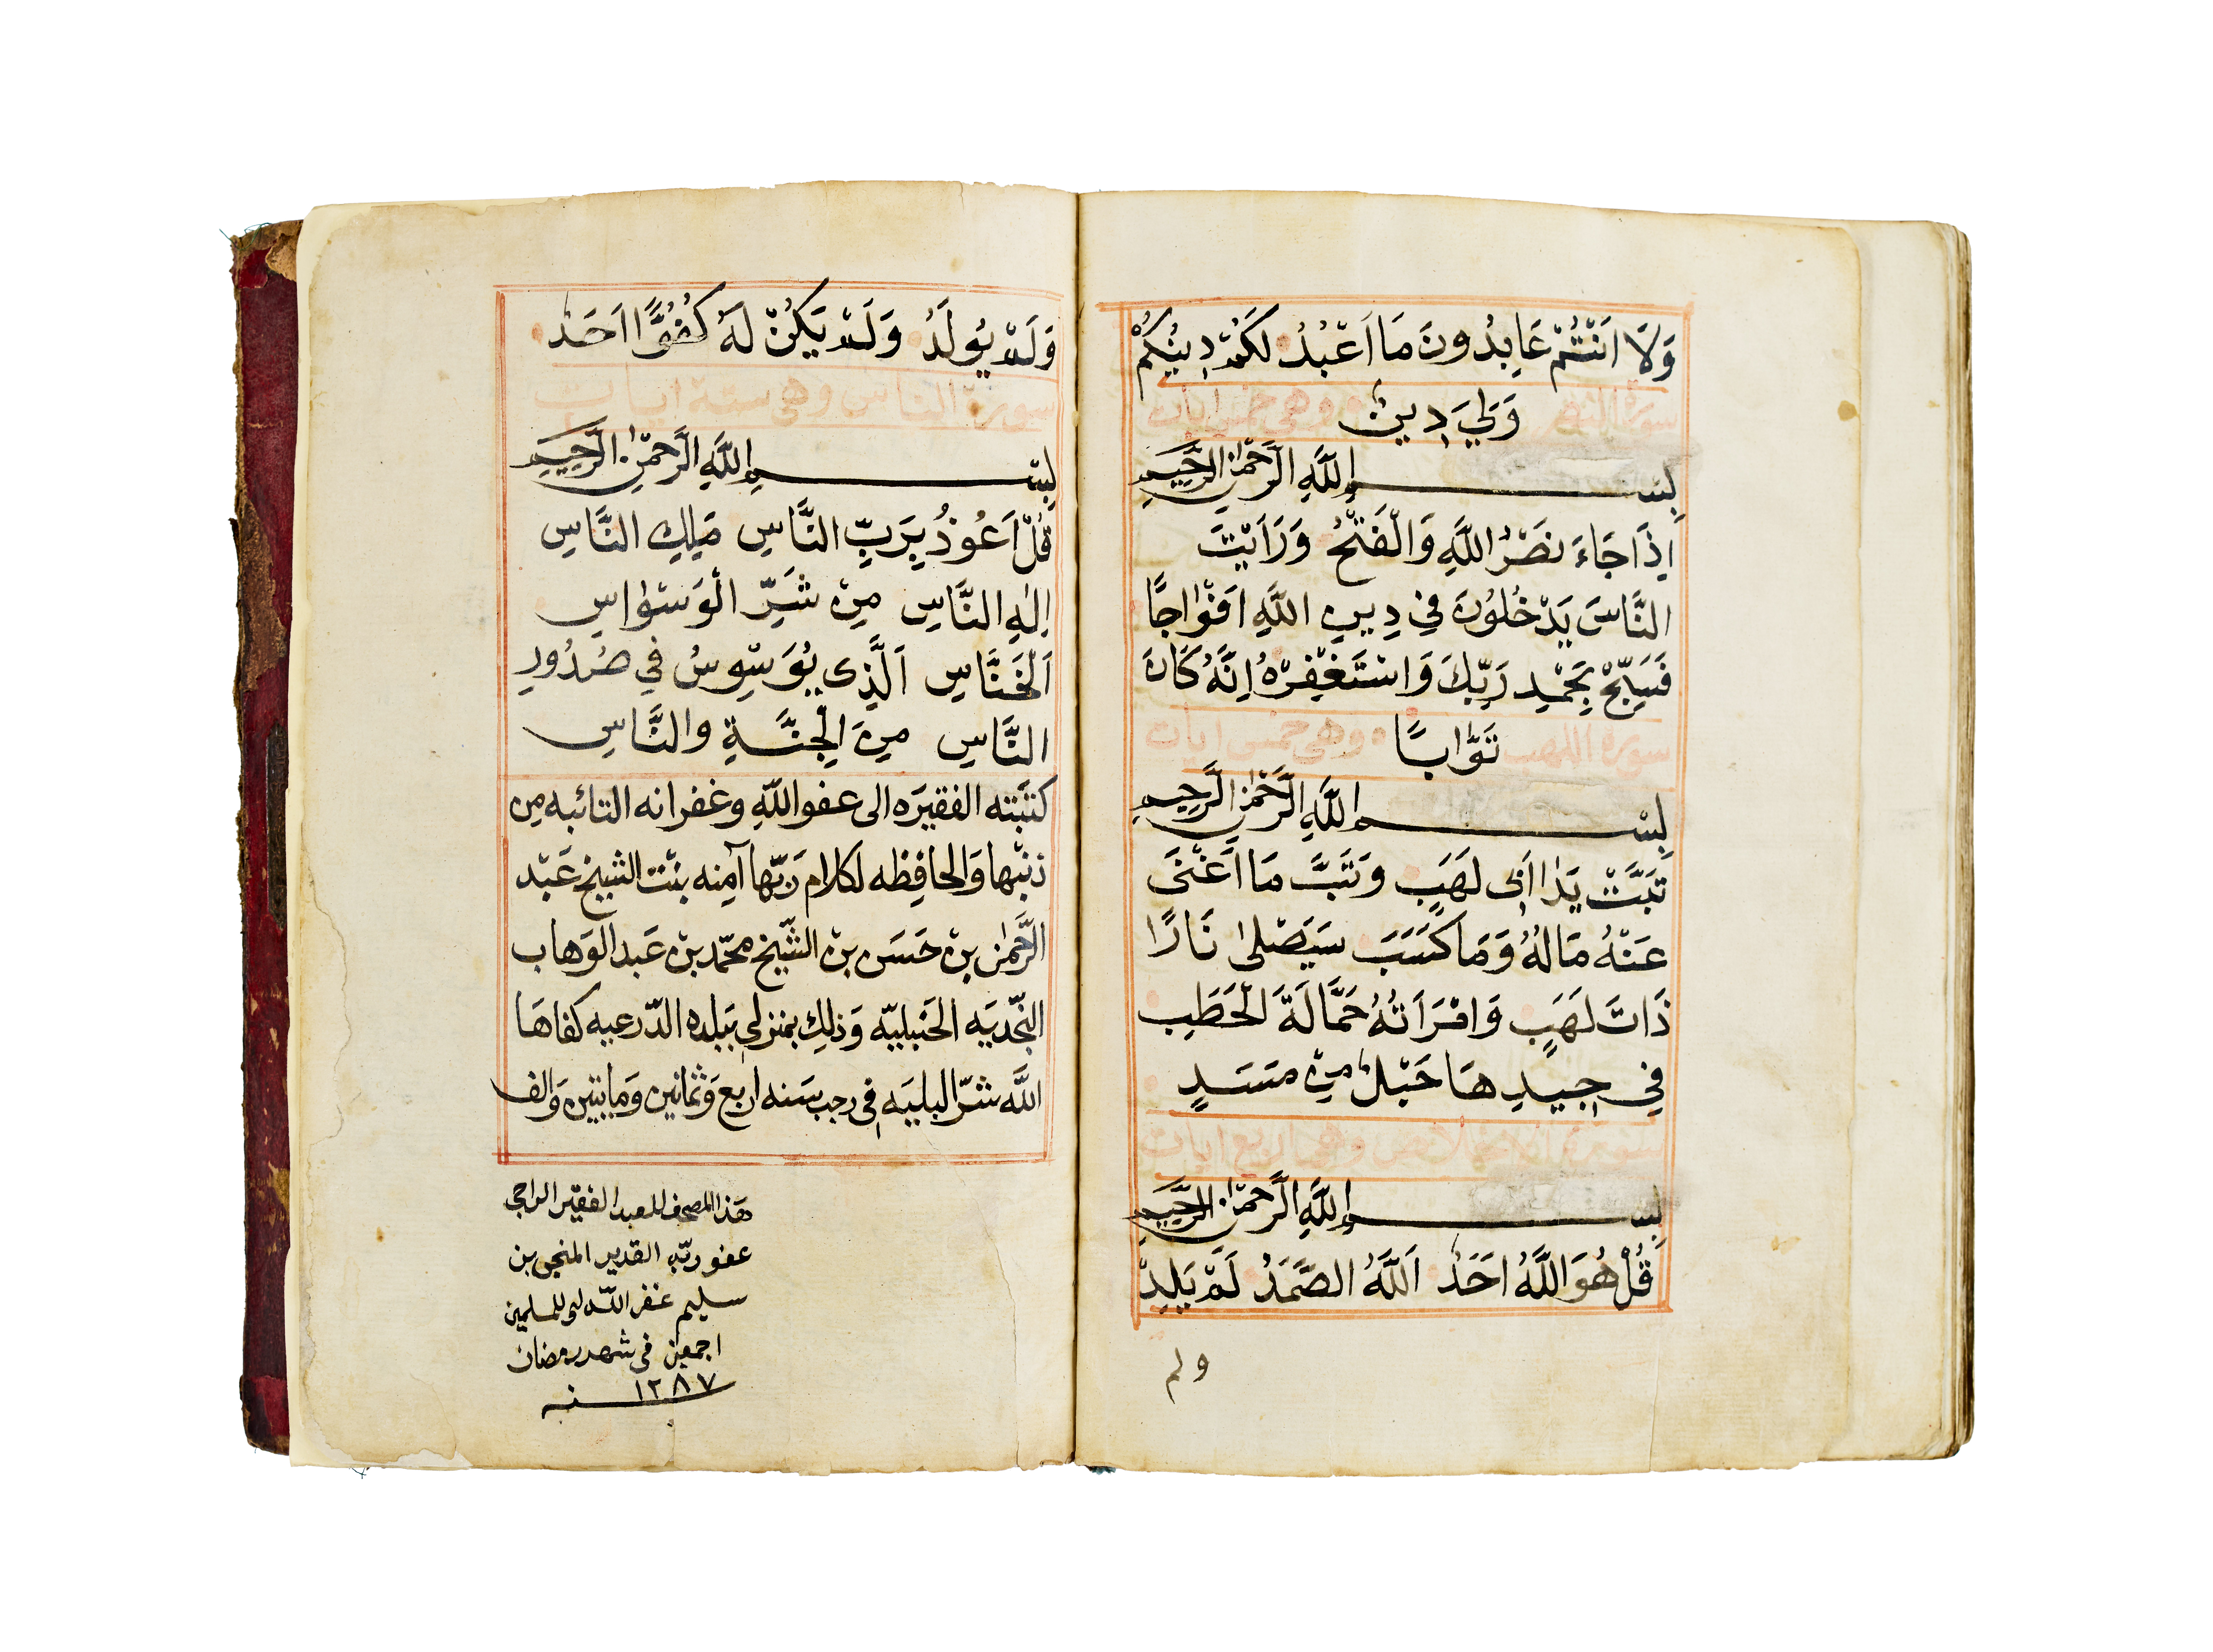 وَلَا اَنْتُمْ عَابِدُونَ مَا اَعْبُدُ لَكُمْ دِينُكُمْ
سورة النصر وَلِيَ دِينِ وهي خمس ايات
بِسْمِ اللَّهِ الرَّحْمٰنِ الرَّحِيمِ
اِذَا جَاءَ نَصْرُ اللَّهِ وَالْفَتْحُ وَرَاَيْتَ
النَّاسَ يَدْخُلُونَ فِي دِينِ اللَّهِ اَفْوَاجًا
فَسَبِّحْ بِحَمْدِ رَبِّكَ وَاسْتَغْفِرْهُ اِنَّهُ كَانَ
سورة اللهب تَوَّابًا وهي خمس ايات
بِسْمِ اللَّهِ الرَّحْمٰنِ الرَّحِيمِ
تَبَّتْ يَدَا اَبِى لَهَبٍ وَتَبَّ مَا اَغْنَى
عَنْهُ مَالُهُ وَمَا كَسَبَ سَيَصْلٰى نَارًا
ذَاتَ لَهَبٍ وَامْرَاَتُهُ حَمَّالَةَ الْحَطَبِ
فِي جِيدِهَا حَبْلٌ مِنْ مَسَدٍ
سورة الاخلاص وهي اربع ايات
بِسْمِ اللَّهِ الرَّحْمٰنِ الرَّحِيمِ
قُلْ هُوَ اللَّهُ اَحَدٌ اَللَّهُ الصَّمَدُ لَمْ يَلِدْ
ولم
وَلَمْ يُولَدْ وَلَمْ يَكُنْ لَهُ كُفُوًا اَحَدٌ
سورة الناس وهي ستة ايات
بِسْمِ اللَّهِ الرَّحْمٰنِ الرَّحِيمِ
قُلْ اَعُوذُ بِرَبِّ النَّاسِ مَلِكِ النَّاسِ
اِلٰهِ النَّاسِ مِنْ شَرِّ الْوَسْوَاسِ
اَلْخَنَّاسِ اَلَّذِى يُوَسْوِسُ فِي صُدُورِ
النَّاسِ مِنَ الْجِنَّةِ والنَّاسِ
كتَبَته الفقيرَه الى عفو اللّهِ وغفرانه التائبه مِن
ذنبْها وَالحافِظه لكلام رَبّها آمِنه بنْت الشيخ عَبْد
الرَّحمٰن بن حَسَن بن الشّيخ محمّد بن عَبد الوَهاب
النّجْديَه الحَنبليّه وَذلِك بمنزلي ببَلده الدّرعيه كفاهَا
اللَّه شرّ البليَه في رجب سَنه اربع وَثمانين وَمايتين وَالف
هَذا المصحف للعبد الفقير الراجي
عفو ربّه القدير المنجي بن
سليم غفر اللّه له وللمسلمين
اجمعين في شهر رمضان
سنه ١٢٨٧